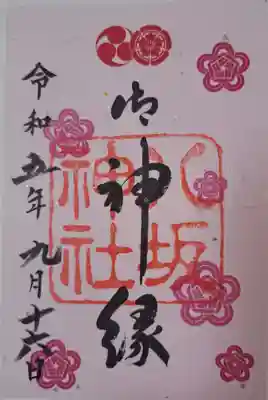 御神縁
八坂
神社
令和五年九月十六日